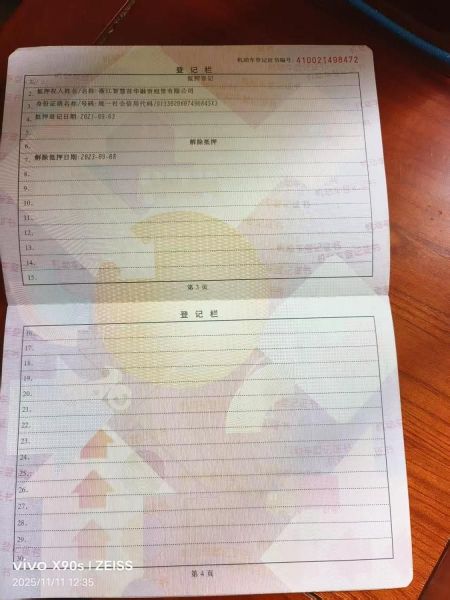 机动车登记证书编号: 410021498472
登记栏
1. 抵押登记
2. 抵押权人姓名/名称:浙江智慧普华融资租赁有限公司
3. 身份证明名称/号码:统一社会信用代码/
4. 抵押登记日期:2021-09-03
5.
6. 解除抵押
7. 解除抵押日期:2023-09-08
8.
9.
10.
11.
12.
13.
14.
15.
第 3 页
登记栏
16.
17.
18.
19.
20.
21.
22.
23.
24.
25.
26.
27.
28.
29.
30.
第 4 页
vivo X90s | ZEISS
2025/11/11 12:35